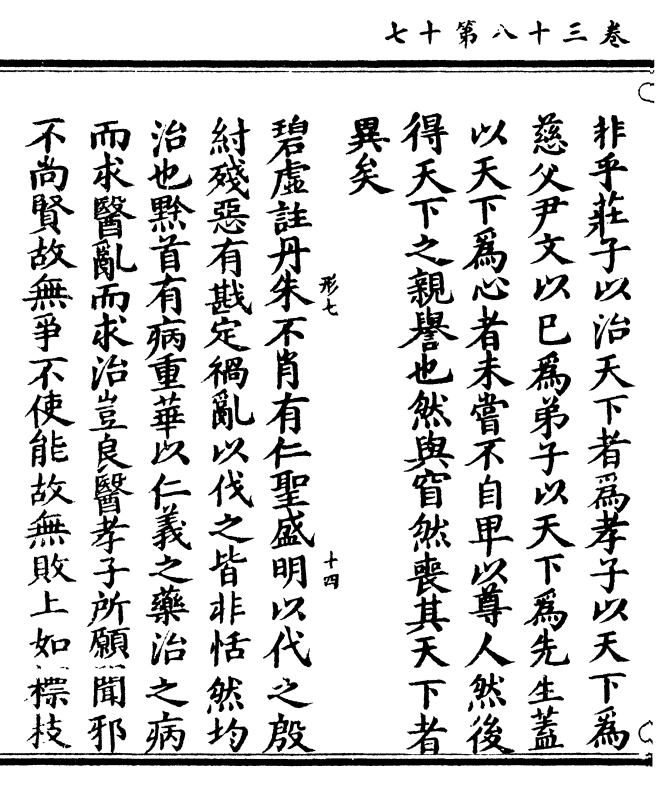 卷三十八第十七
非乎莊子以治天下者爲孝子以天下爲
慈父尹文以已爲弟子以天下爲先生蓋
以天下爲心者未嘗不自卑以尊人然後
得天下之親譽也然與窅然喪其天下者
異矣
形七
十四
碧虛註丹朱不肖有仁聖盛明以代之殷
紂殘惡有戡定禍亂以伐之皆非恬然均
治也黔首有病重華以仁義之藥治之病
而求醫亂而求治豈良醫孝子所願聞邪
不尚賢故無爭不使能故無敗上如標枝